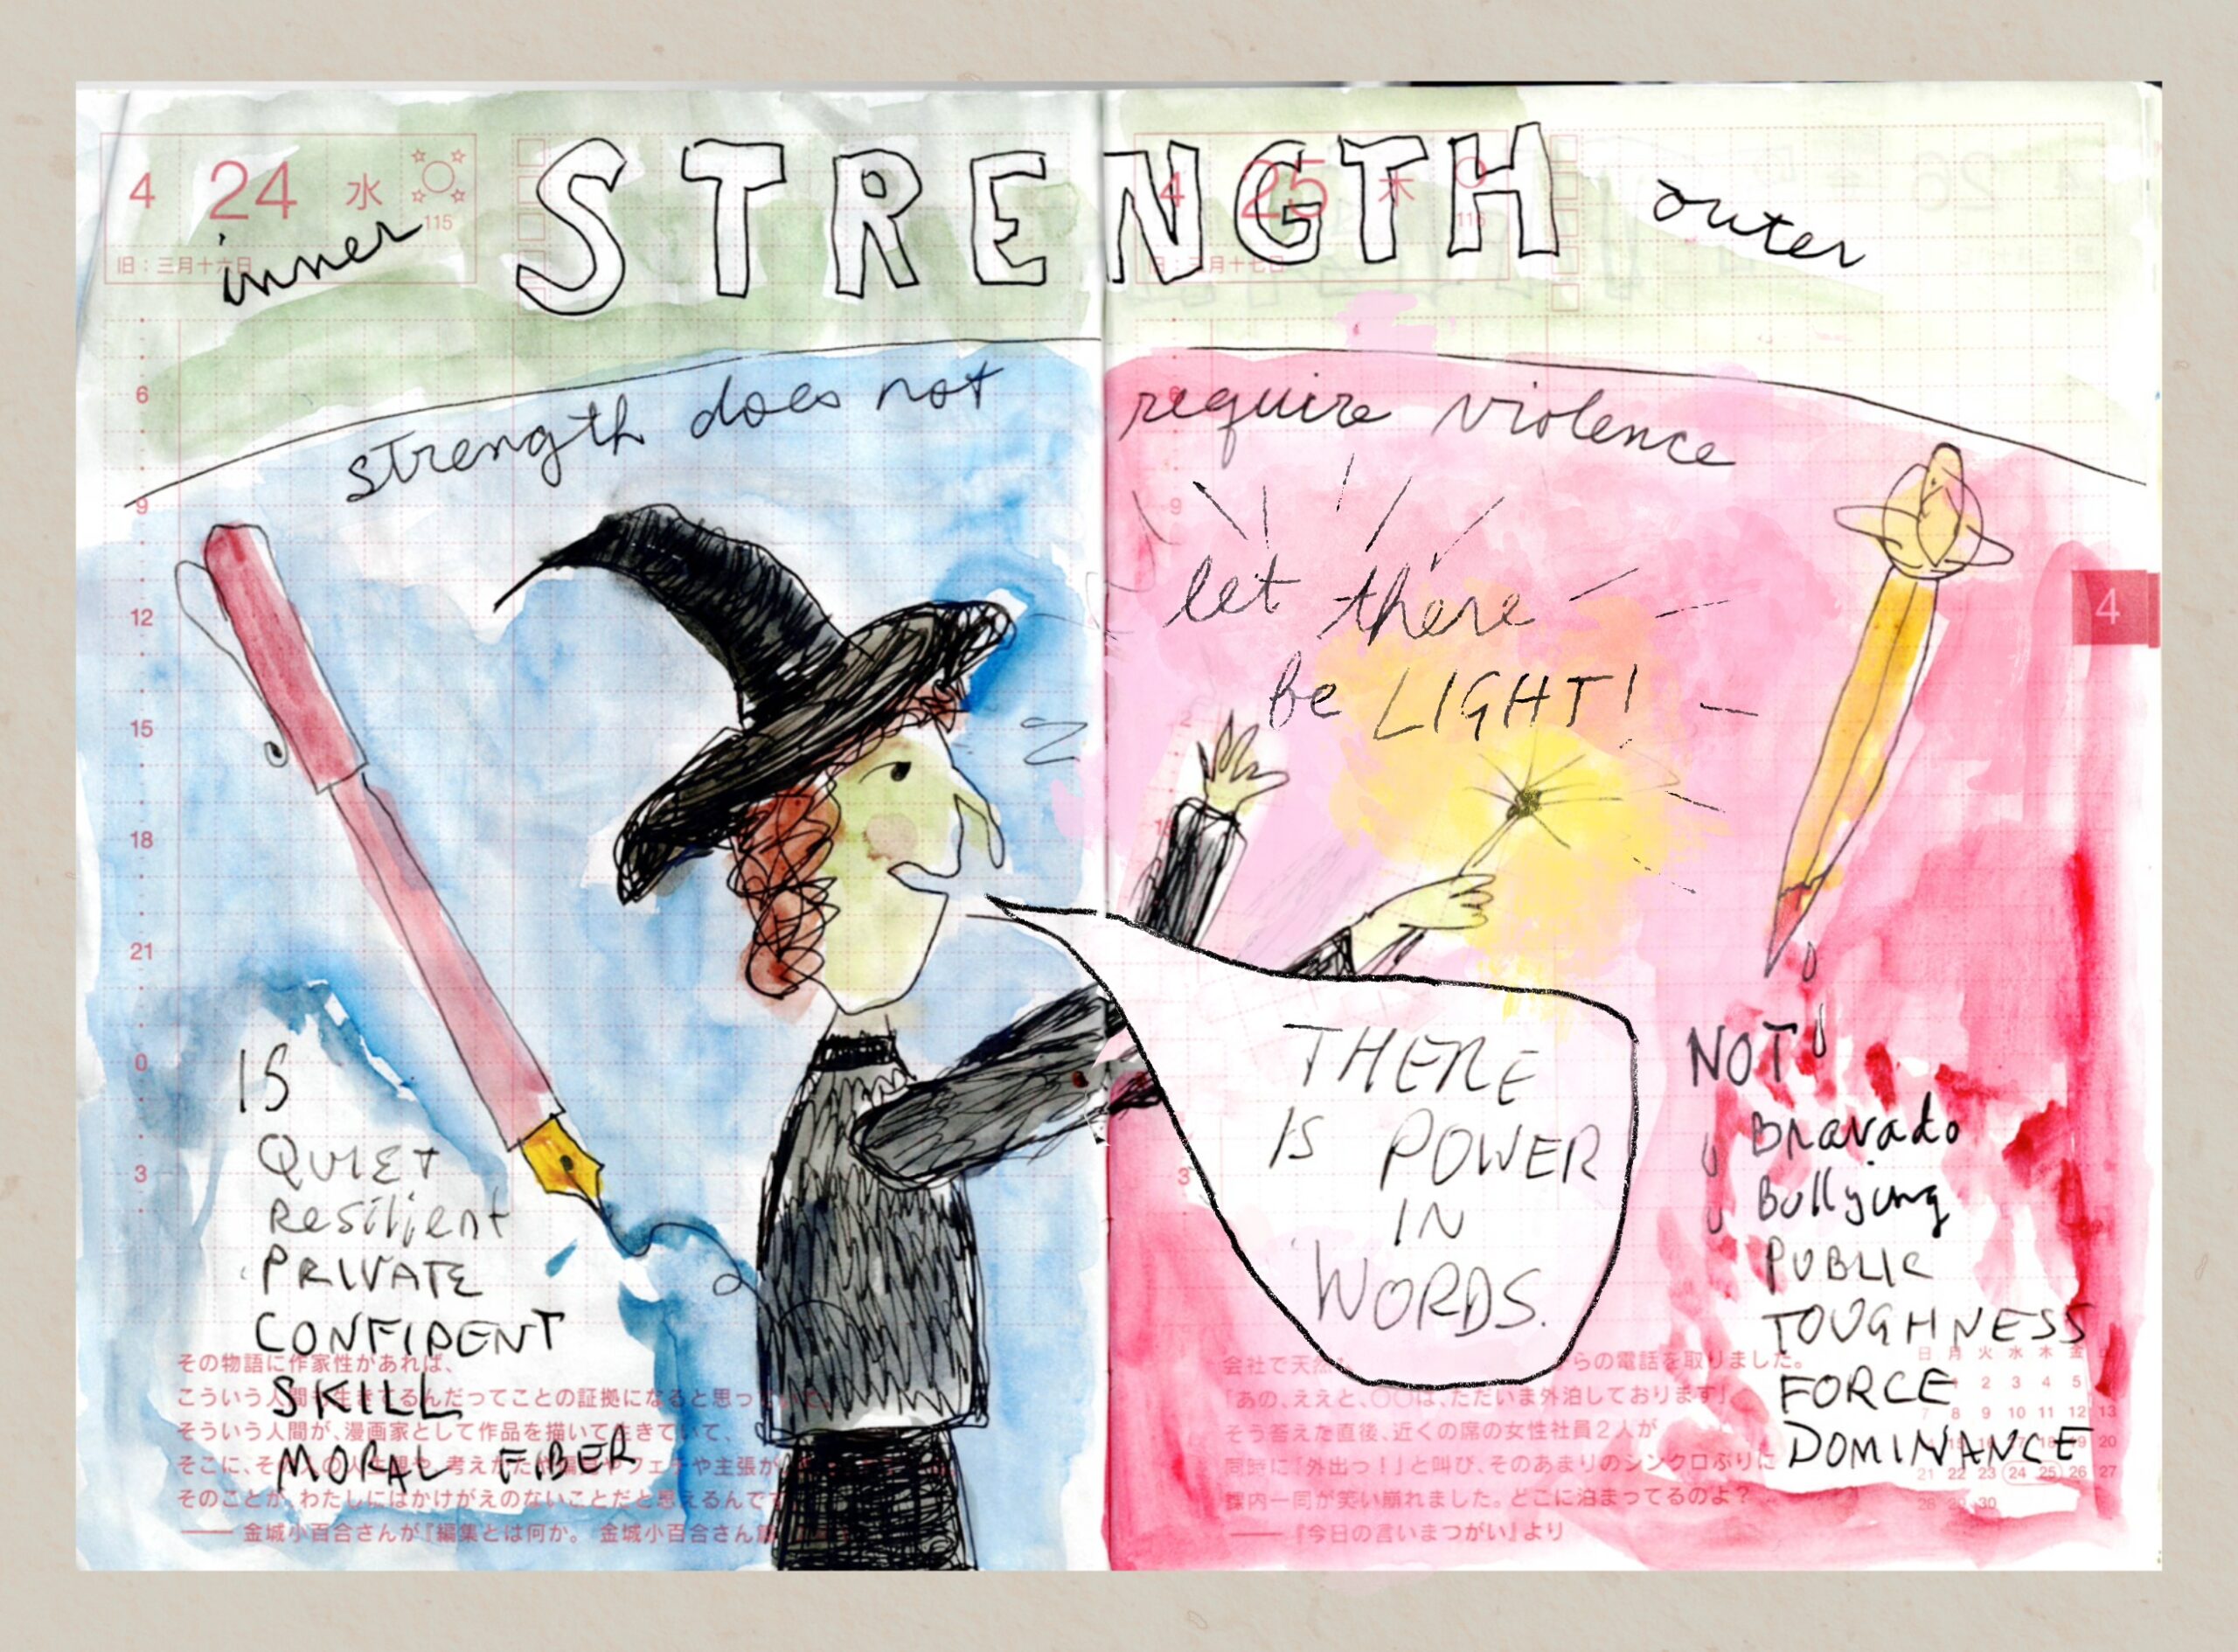 4 24 水
115
inner STRENGTH outer
4 25 木
116
strength does not require violence
let there
be LIGHT!
THERE
IS POWER
IN
WORDS.
IS
QUIET
Resilient
PRIVATE
CONFIDENT
SKILL
MORAL FIBER
NOT
Bravado
Bullying
PUBLIC
TOUGHNESS
FORCE
DOMINANCE
4
旧：三月十六日
旧：三月十七日
6
9
12
15
18
21
0
3
6
9
3
その物語に作家性があれば、
こういう人間が生きてるんだってことの証拠になると思っていて。
そういう人間が、漫画家として作品を描いて生きていて、
そこに、その人の人生観や、考えかたや偏見やフェチや主張が
そのことが、わたしにはかけがえのないことだと思えるんです
—— 金城小百合さんが『編集とは何か。 金城小百合さん
会社で天然 らの電話を取りました。
「あの、ええと、〇〇は、ただいま外泊しております」
そう答えた直後、近くの席の女性社員2人が
同時に「外出っ！」と叫び、そのあまりのシンクロぶりに
課内一同が笑い崩れました。どこに泊まってるのよ？
—— 『今日の言いまつがい』より
日 月 火 水 木 金
1 2 3 4 5
7 8 9 10 11 12 13
15 17 18 19 20
21 22 23 24 25 26 27
28 29 30